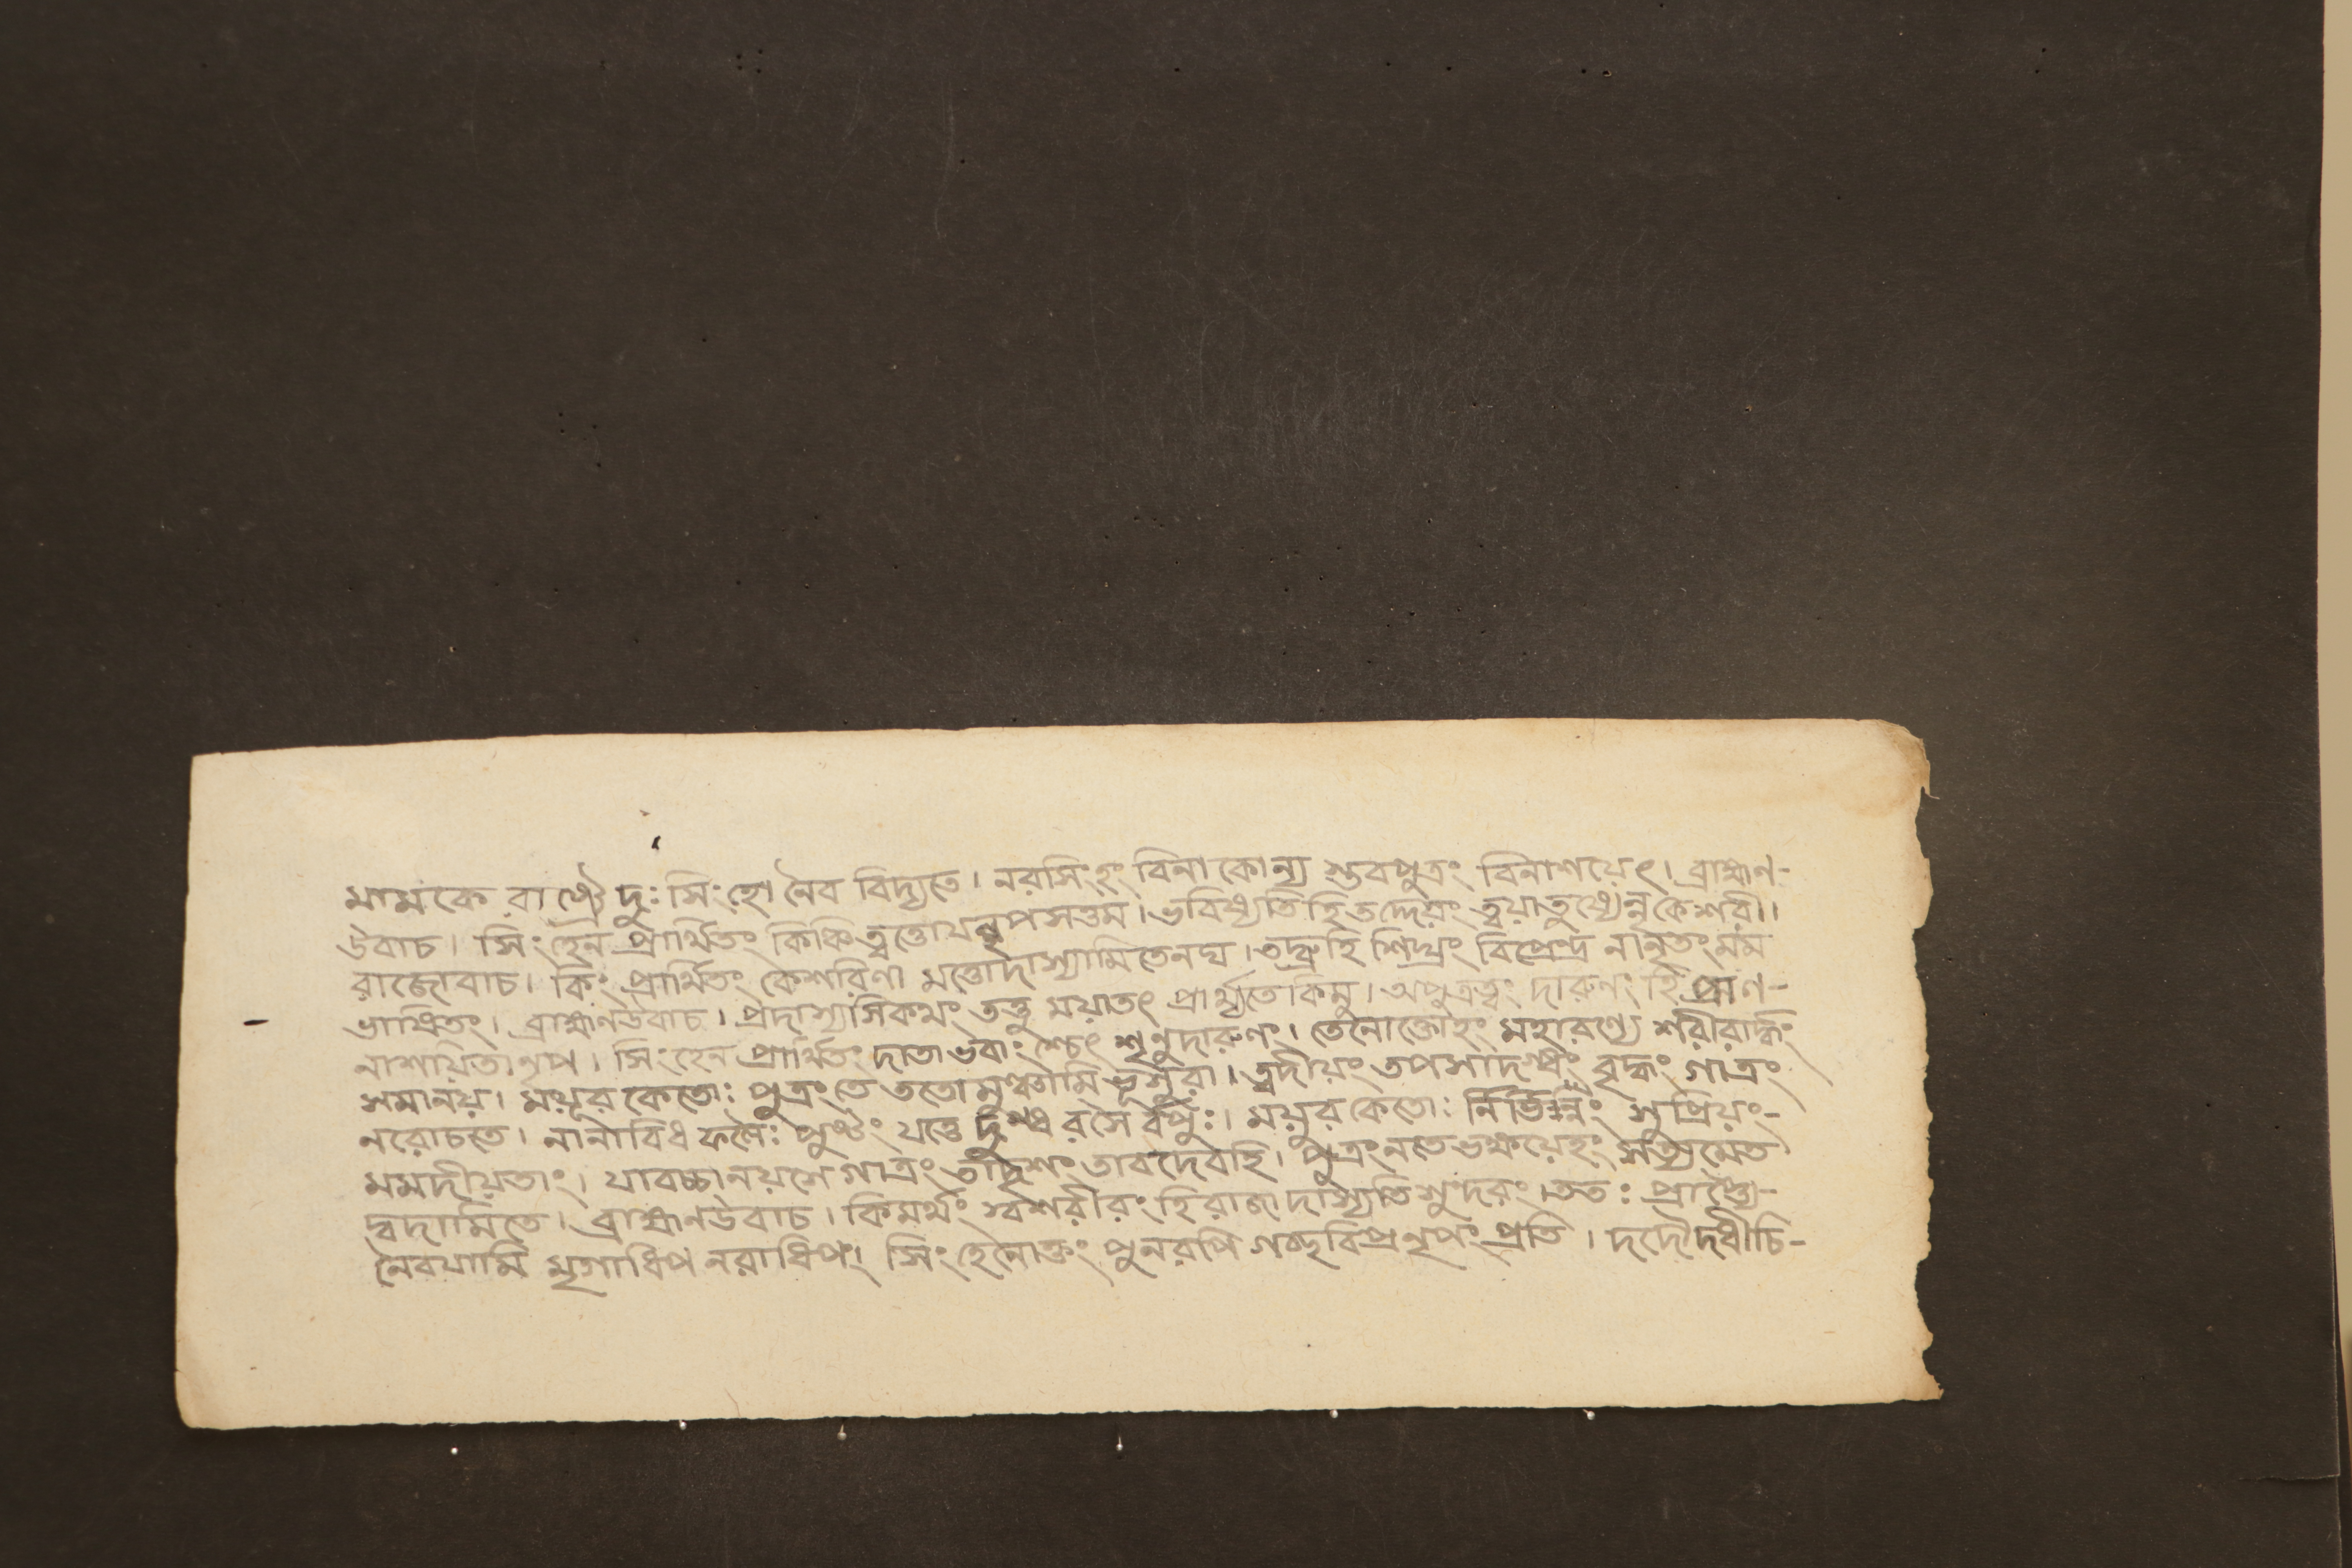 মামকে রাষ্ট্রে দুঃ সিংহো নৈব বিদ্যতে। নরসিংহং বিনা কোন্য স্তবপুত্রং বিনাশয়েৎ। ব্রাহ্মণ-
উবাচ। সিংহেন প্রার্থিতং কিঞ্চিত্বত্তোযন্নৃপসত্তম। ভবিষ্যতি হি তদ্দেয়ং ত্বয়াতুষ্যেন্নকেশরী।
রাজোবাচ। কিং প্রার্থিতং কেশরিণা মত্তোদাস্যামিতেনঘ। তদ্ব্রুহি শিঘ্রং বিপ্রেন্দ্র নানৃতং মম
ভাষিতং। ব্রাহ্মণউবাচ। প্রদাস্যসিকথং তত্তু ময়াতৎ প্রার্থ্যতেকিমু। অপুত্রত্বং দারুণং হি প্রাণ-
নাশয়িতানৃপ। সিংহেন প্রার্থিতং দাতাভবাংশ্চেৎ শৃনুদারুণং। তেনোক্তোহং মহারণ্যে শরীরার্দ্ধং
সমানয়। ময়ূরকেতোঃ পুত্রং তে ততোমুঞ্চামি ভূসুরা। ত্বদীয়ং তপসাদগ্ধং বৃদ্ধং গাত্রং
নরোচতে। নানাবিধ ফলৈঃ পুষ্টং যত্তে দুগ্ধ রসৈ র্বপুঃ। ময়ূর কেতোঃ র্নির্ভিন্নং সুপ্রিয়ং-
মমদীয়তাং। যাবচ্চানয়সে গাত্রং তাদৃশং তাবদেবহি। পুত্রংনতেভক্ষয়েহং সত্যমেত
দ্বদামিতে। ব্রাহ্মণউবাচ। কিমর্থং স্বশরীরং হিরাজা দাস্যতিসুংদরং। ততঃ প্রার্থ্যে-
নৈবযামি মৃগাধিপ নরাধিপং। সিংহেনোক্তং পুনরপি গচ্ছবিপ্রনৃপং প্রতি। দদৌদধীচি-